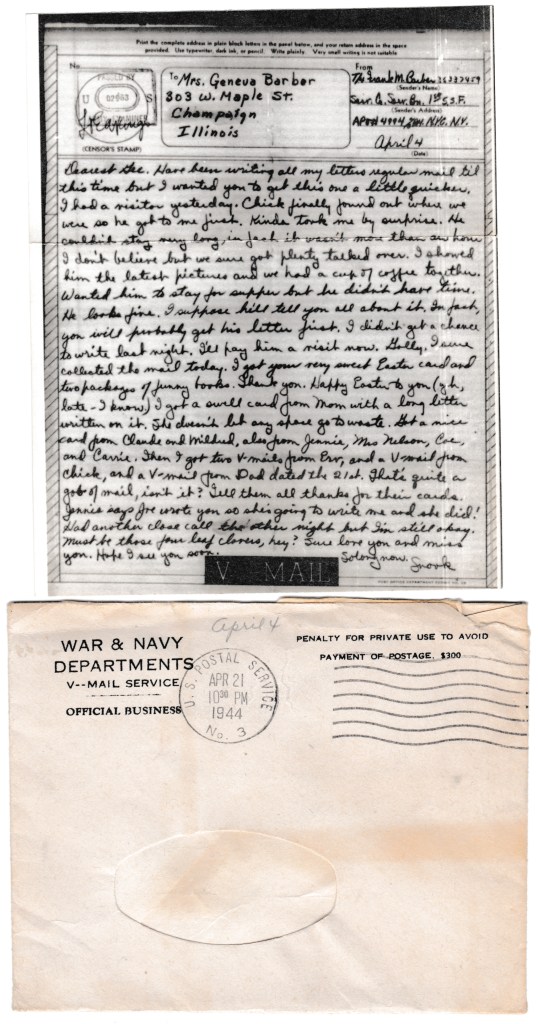 Print the complete address in plain block letters in the panel below, and your return address in the space
provided. Use typewriter, dark ink, or pencil. Write plainly. Very small writing is not suitable
No.
PASSED BY
U S
02663
EXAMINER
(CENSOR'S STAMP)
To Mrs. Geneva Barber
303 W. Maple St.
Champaign
Illinois
From
T/4 Frank M. Barber 36337459
(Sender's Name)
Serv. Co. Serv. Bn. 1st S.S.F.
(Sender's Address)
APO# 4994, N.Y.C. N.Y.
April 4
(Date)
Dearest Gee. Have been writing all my letters regular mail til
this time but I wanted you to get this one a little quicker.
I had a visitor yesterday. Chick finally found out where we
were so he got to me first. Kinda took me by surprise. He
couldn't stay very long, in fact it wasn't more than an hour
I don't believe but we sure got plenty talked over. I showed
him the latest pictures and we had a cup of coffee together.
Wanted him to stay for supper but he didn't have time.
He looks fine. I suppose he'll tell you all about it. In fact,
you will probably get his letter first. I didn't get a chance
to write last night. I'll pay him a visit now. Golly, I sure
collected the mail today. I got your very sweet Easter card and
two packages of funny books. Thank you. Happy Easter to you (
late - I know) I got a swell card from Mom with a long letter
written on it. She doesn't let any space go to waste. Got a nice
card from Claude and Mildred, also from Jennie, Mrs Nelson, Coe,
and Carrie. Then I got two V-mails from Erv, and a V-mail from
Chick, and a V-mail from Dad dated the 21st. That's quite a
gob of mail, isn't it? Tell them all thanks for their cards.
Jennie says Joe wrote you so she's going to write me and she did!
Had another close call the other night but I'm still okay.
Must be those four leaf clovers, hey? Sure love you and miss
you. Hope I see you soon. So long now.
Snook
V MAIL
April 4
WAR & NAVY
DEPARTMENTS
V--MAIL SERVICE
OFFICIAL BUSINESS
U.S. POSTAL SERVICE
APR 21
10 30 PM
1944
No. 3
PENALTY FOR PRIVATE USE TO AVOID
PAYMENT OF POSTAGE, $300